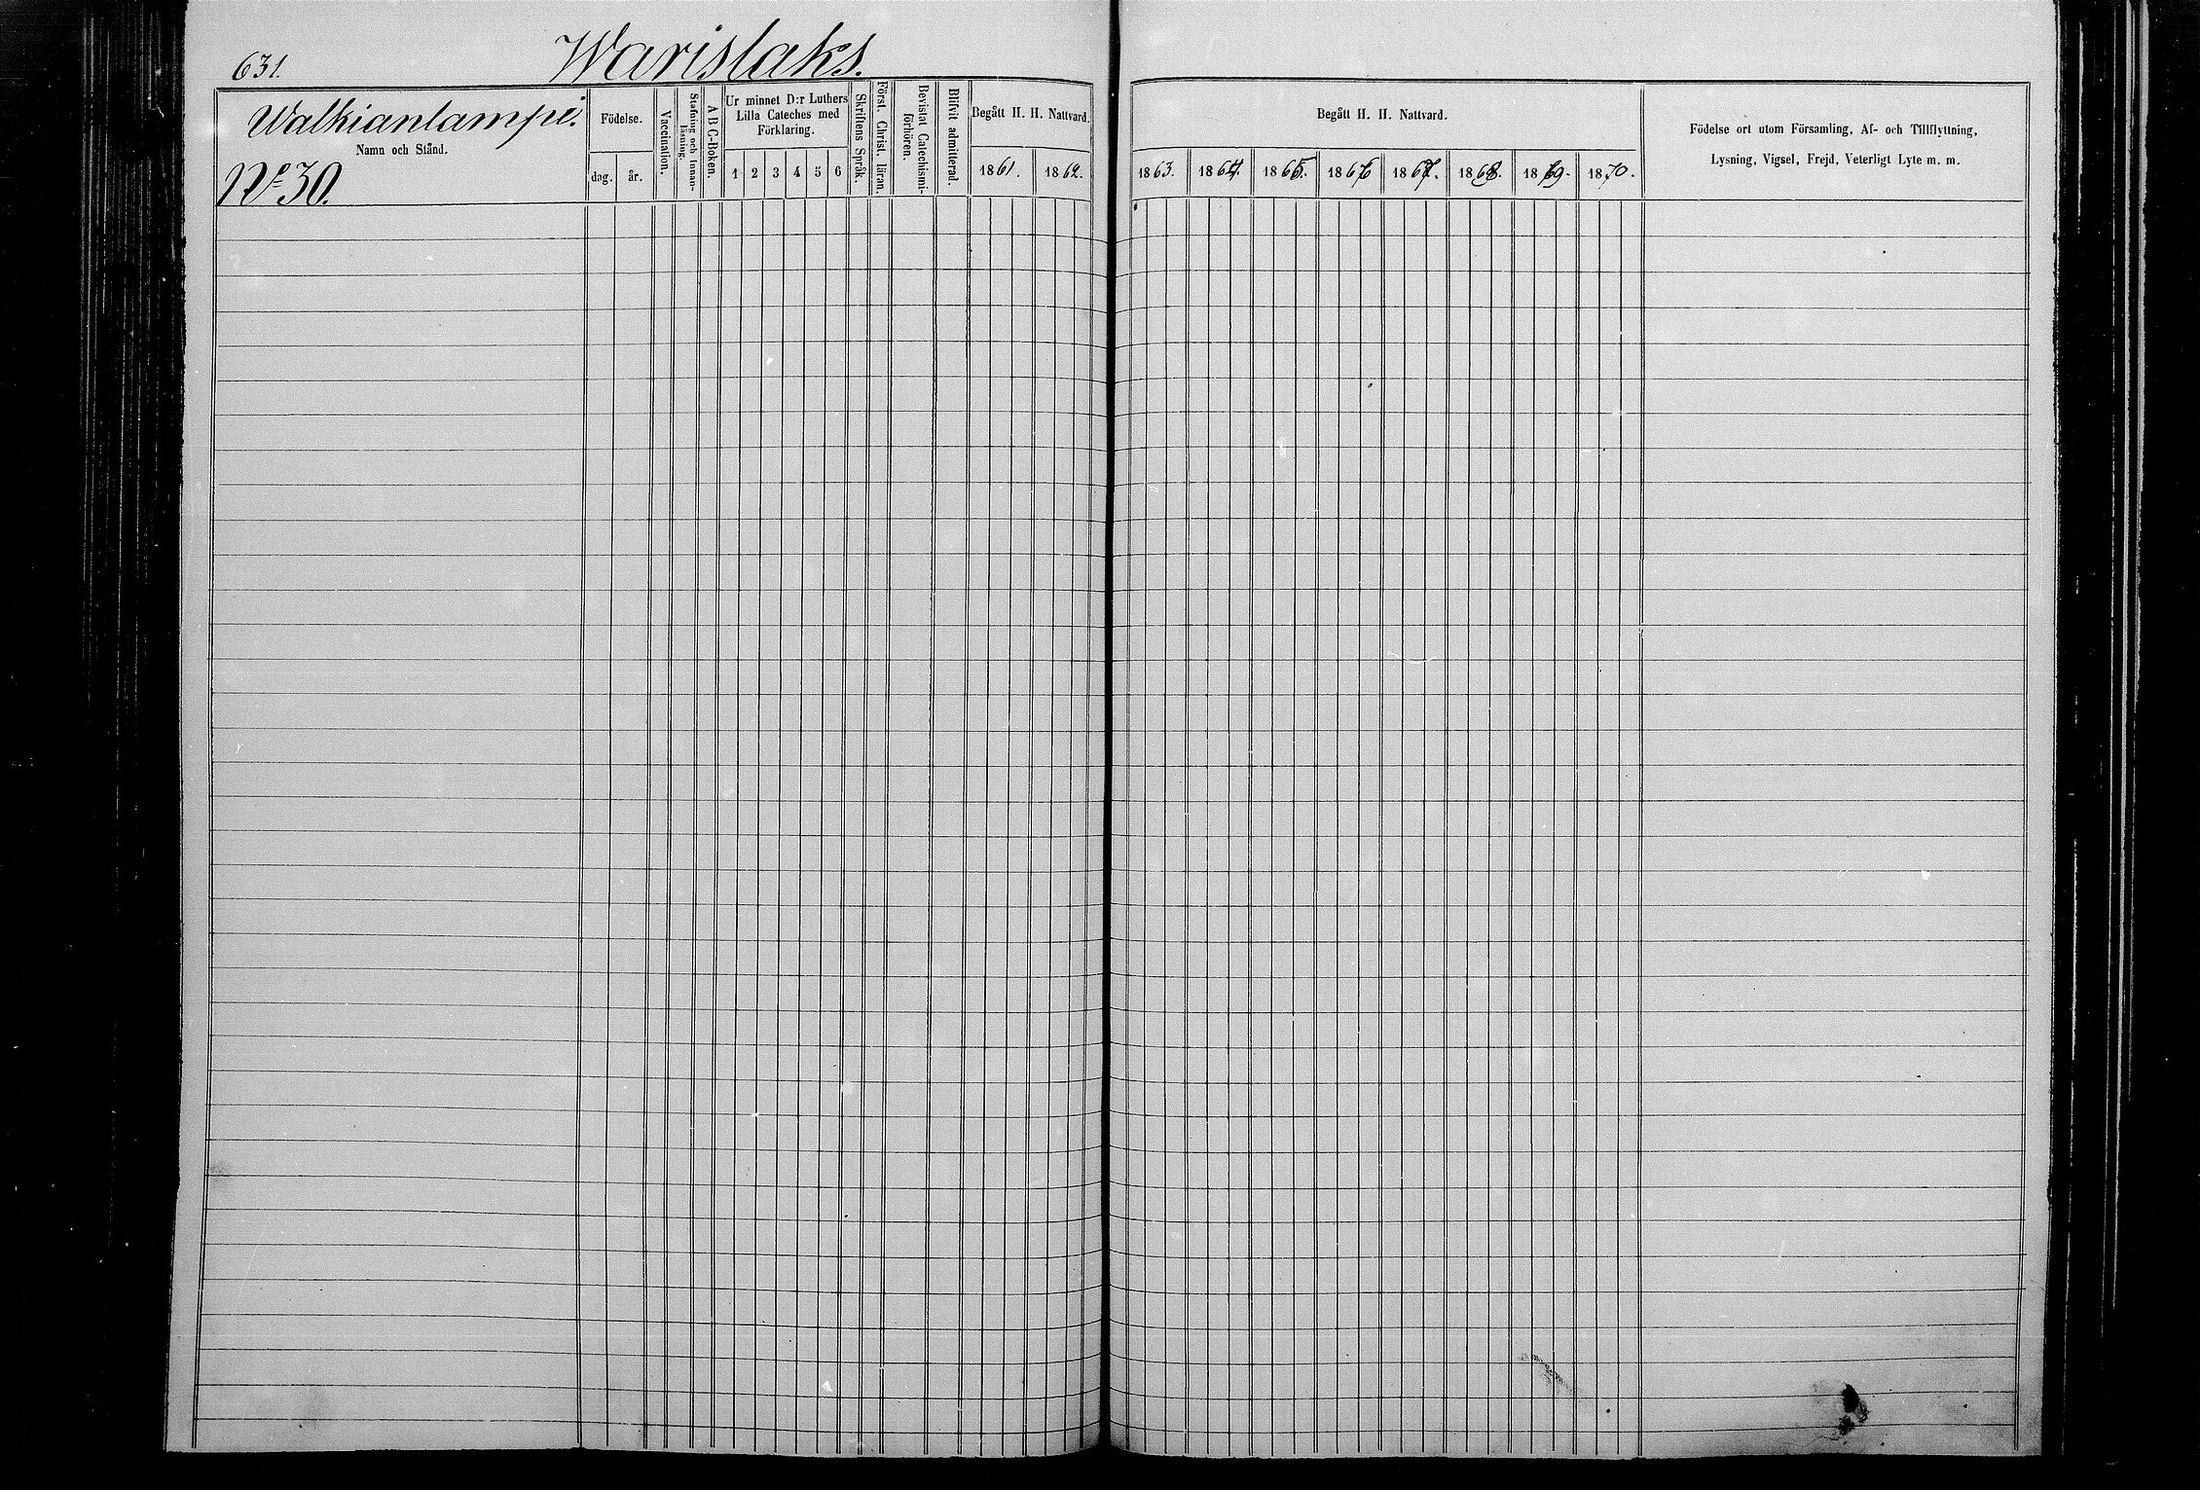 631.
Warislaks.
Walkianlampi.
Namn och Stånd.
N:o 30.
Födelse.
dag.
år.
Vaccination.
Stafning och Innan-
läsning.
A B C-Boken.
Ur minnet D:r Luthers
Lilla Cateches med
Förklaring.
1 2 3 4 5 6
Skriftens Språk.
Först. Christ. läran.
Bevistat Catechismi-
förhören.
Blifvit admitterad.
Begått H. H. Nattvard.
1861. 1862.
Begått H. H. Nattvard.
1863. 1864. 1865. 1866 1867. 1868. 1869. 1870.
Födelse ort utom Församling, Af- och Tillflyttning,
Lysning, Vigsel, Frejd, Veterligt Lyte m. m.